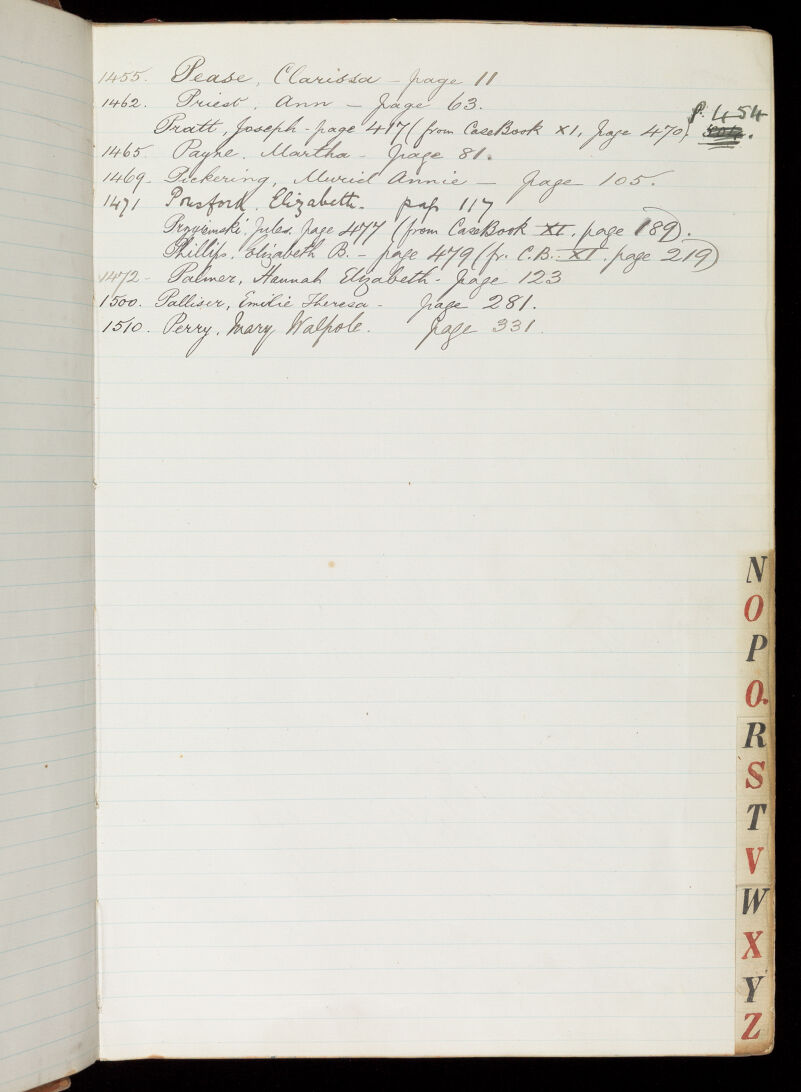 1455. Pease, Clarissa - page 11
1462. Priest, Ann - page 63.
p. 454
Pratt, Joseph - page 417 (from Case Book XI, page 470)
1465. Payne, Martha - page 81.
1469. Pickering, Muriel Annie - page 105.
1471 Elizabeth. page 117
Jules. page 477 (from Case Book XI, page 189).
Phillips, Elizabeth B. - page 479 (fr. C.B. XI. page 219)
1472 - Palmer, Hannah Elizabeth - page 123
1500. Palliser, Emilie Theresa - page 281.
1510. Perry, Mary Walpole. page 331.
N
O
P
Q.
R
S
T
V
W
X
Y
Z